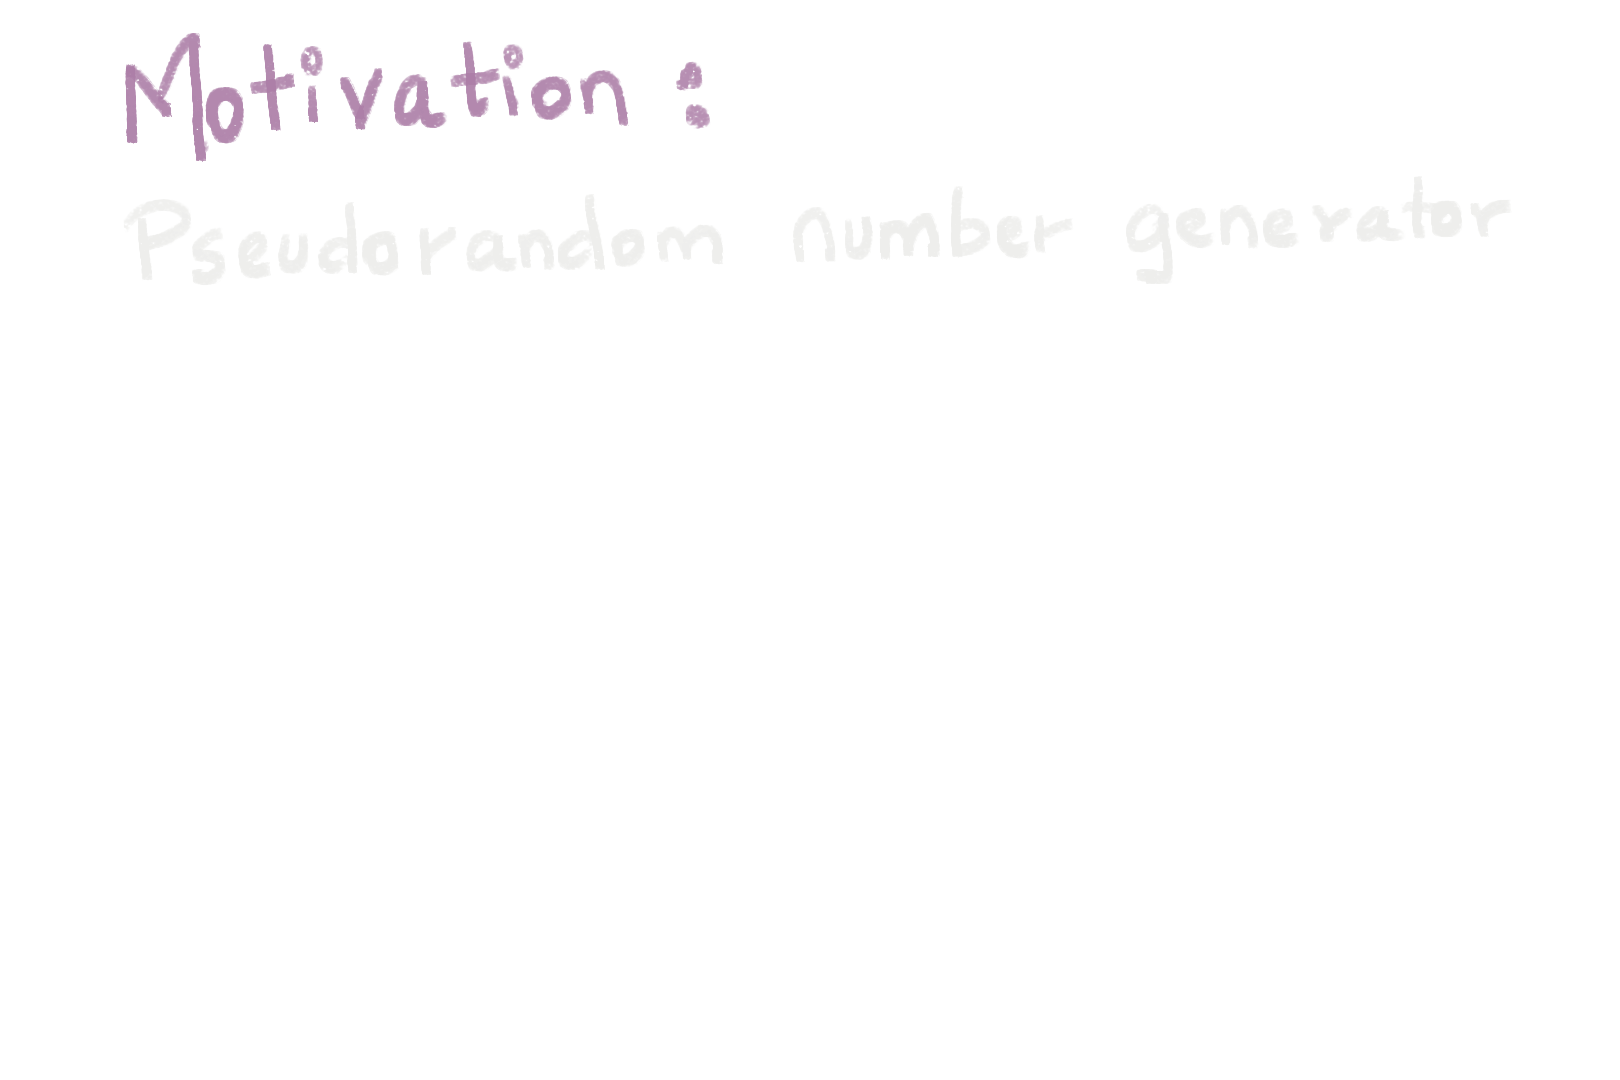 Motivation :
Pseudorandom number generator